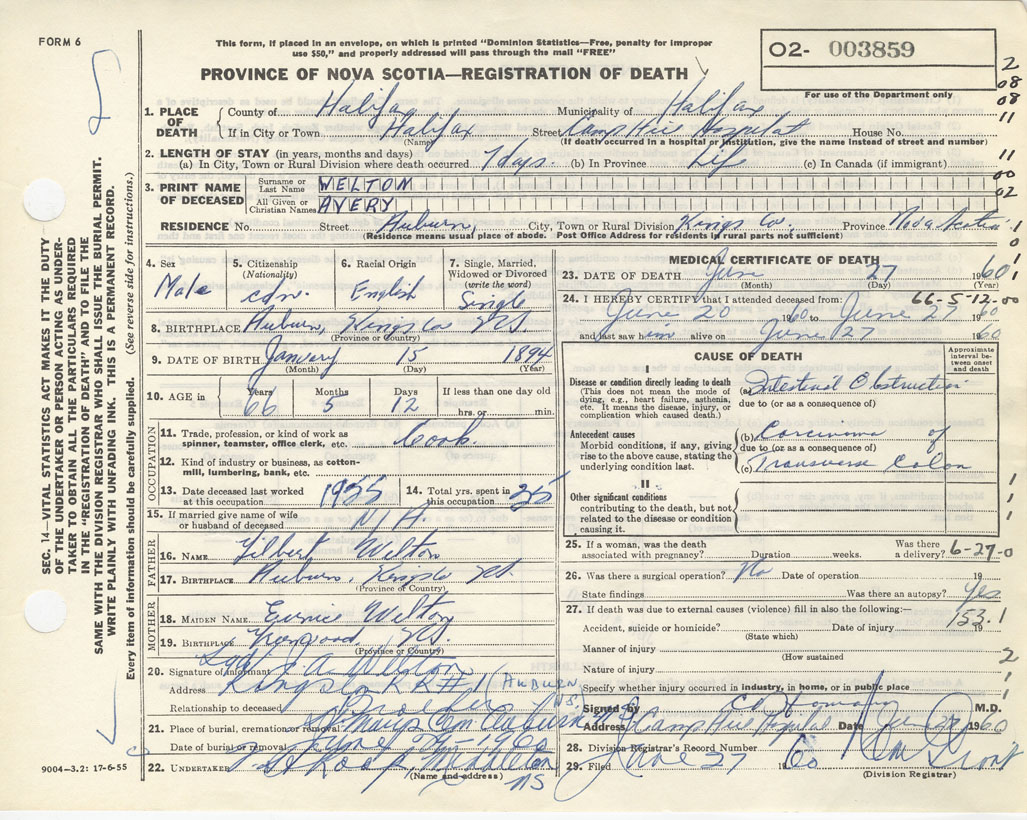 FORM 6
This form, if placed in an envelope, on which is printed "Dominion Statistics—Free, penalty for improper
use $50," and properly addressed will pass through the mail "FREE"
PROVINCE OF NOVA SCOTIA—REGISTRATION OF DEATH
O2- 003859
For use of the Department only
2
08
08
11
11
00
02
1
0
1
1. PLACE OF DEATH
County of Halifax Municipality of Halifax
If in City or Town Halifax Street Camp Hill Hospital House No.
(Name) (If death occurred in a hospital or institution, give the name instead of street and number)
2. LENGTH OF STAY (in years, months and days)
(a) In City, Town or Rural Division where death occurred 7 days. (b) In Province Life (c) In Canada (if immigrant)
3. PRINT NAME OF DECEASED
Surname or Last Name WELTON
All Given or Christian Names AVERY
RESIDENCE No. Street Auburn, City, Town or Rural Division Kings Co., Province Nova Scotia
(Residence means usual place of abode. Post Office Address for residents in rural parts not sufficient)
4. Sex
Male
5. Citizenship
(Nationality)
cdn.
6. Racial Origin
English
7. Single, Married, Widowed or Divorced
(write the word)
Single
8. BIRTHPLACE Auburn, Kings Co NS.
(Province or Country)
9. DATE OF BIRTH January 15 1894
(Month) (Day) (Year)
10. AGE in
Years 66
Months 5
Days 12
If less than one day old
hrs. or min.
OCCUPATION
11. Trade, profession, or kind of work as spinner, teamster, office clerk, etc. Cook.
12. Kind of industry or business, as cotton-mill, lumbering, bank, etc.
13. Date deceased last worked at this occupation 1955
14. Total yrs. spent in this occupation 35
15. If married give name of wife or husband of deceased N/A.
FATHER
16. NAME Gilbert Welton
17. BIRTHPLACE Auburn, Kings Co NS.
(Province of Country)
MOTHER
18. MAIDEN NAME Welton
19. BIRTHPLACE NS.
(Province or Country)
20. Signature of informant Welton
Address Kingston RR#1 (AUBURN NS.)
Relationship to deceased Brother
21. Place of burial, cremation or removal St Marys Cem Auburn NS
Date of burial or removal June
22. UNDERTAKER Middleton
NS
(Name and address)
MEDICAL CERTIFICATE OF DEATH
23. DATE OF DEATH June 27 1960
(Month) (Day) (Year)
66-5-12-00
24. I HEREBY CERTIFY that I attended deceased from:
June 20 1960 to June 27 1960
and last saw him alive on June 27 1960
CAUSE OF DEATH
Approximate interval between onset and death
I
Disease or condition directly leading to death
(This does not mean the mode of dying, e.g., heart failure, asthenia, etc. It means the disease, injury, or complication which caused death.)
(a) Intestinal Obstruction
due to (or as a consequence of)
Antecedent causes
Morbid conditions, if any, giving rise to the above cause, stating the underlying condition last.
(b) Carcinoma of
due to (or as a consequence of)
(c) Transverse Colon
II
Other significant conditions contributing to the death, but not related to the disease or condition causing it.
1
1
1
25. If a woman, was the death associated with pregnancy? Duration weeks. Was there a delivery? 6-27-0
26. Was there a surgical operation? No Date of operation 19
State findings Was there an autopsy? Yes
27. If death was due to external causes (violence) fill in also the following:— 153.1
Accident, suicide or homicide? Date of injury 19
(State which)
Manner of injury
(How sustained
Nature of injury
2
1
1
Specify whether injury occurred in industry, in home, or in public place
Signed by M.D.
Address Camp Hill Hospital Date June 27 1960
28. Division Registrar's Record Number
29. Filed June 27 1960
(Division Registrar)
SEC. 14—VITAL STATISTICS ACT MAKES IT THE DUTY
OF THE UNDERTAKER OR PERSON ACTING AS UNDER-
TAKER TO OBTAIN ALL THE PARTICULARS REQUIRED
IN THE "REGISTRATION OF DEATH" AND TO FILE THE
SAME WITH THE DIVISION REGISTRAR WHO SHALL ISSUE THE BURIAL PERMIT.
WRITE PLAINLY WITH UNFADING INK. THIS IS A PERMANENT RECORD.
Every item of information should be carefully supplied. (See reverse side for instructions.)
9004-3.2: 17-6-55